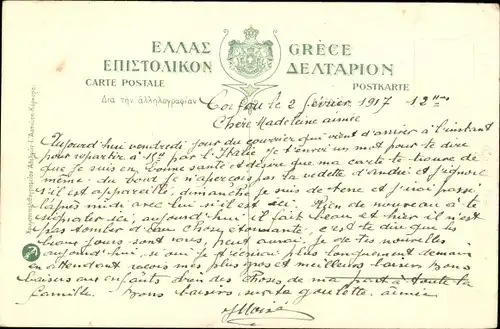 ΕΛΛΑΣ GRÈCE
ΕΠΙΣΤΟΛΙΚΟΝ ΔΕΛΤΑΡΙΟΝ
CARTE POSTALE POSTKARTE
Διὰ τὴν ἀλληλογραφίαν
Corfou le 2 février 1917 12 h
Chère Madelaine aimée
Aujourd'hui vendredi jour du courrier qui vient d'arriver à l'instant
pour repartir à 15h par l'Italie je t'envoi un mot pour te dire
que je suis en bonne santé et désire que ma carte te trouve de
même du bord je n'aperçois pas la vedette d'andré et j'ignore
s'il est appareillé, dimanche je suis de terre et j'irai passé
l'après midi avec lui s'il est ici. Rien de nouveau à te
signaler ici, aujourd'hui il fait beau et hier il n'est
pas tomber d'eau chose étonnante, c'est te dire que les
beaux jours sont venus, peut aurai je de tes nouvelles
aujourd'hui, si oui je t'écrirai plus longuement demain
en attendant reçois mes plus gros et meilleurs baisers Bons
baisers aux enfants bien des choses de ma part à toute la
famille. Bons baisers goulette aimée